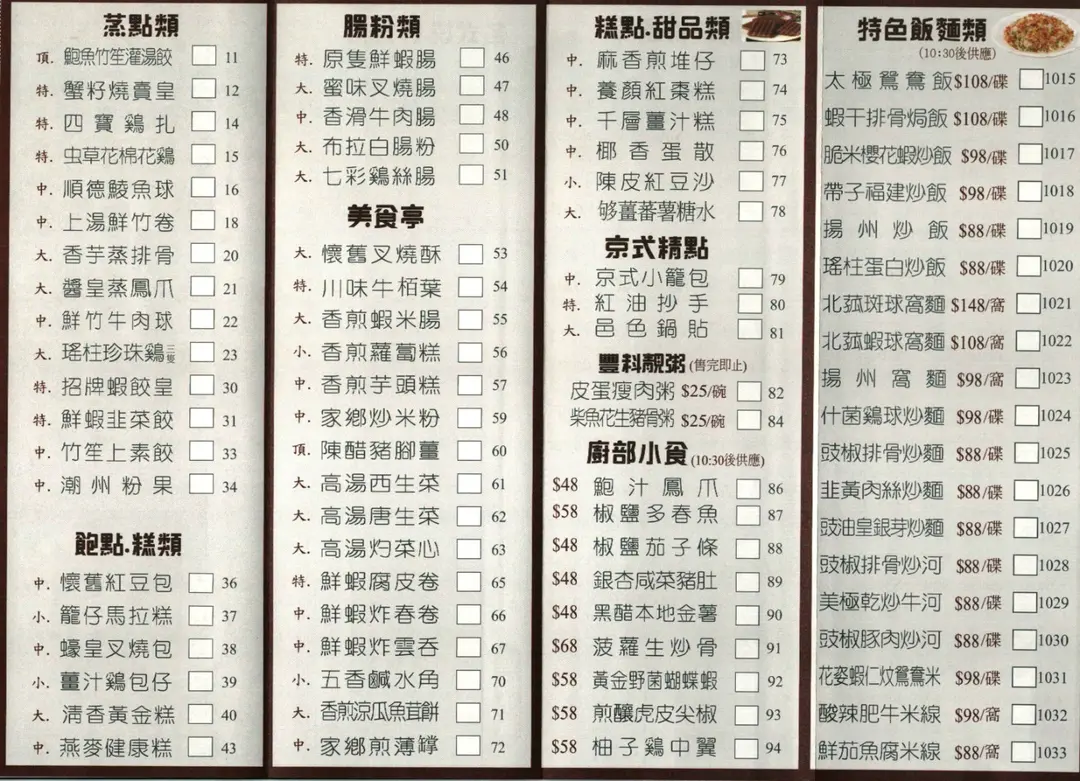 蒸點類
頂. 鮑魚竹笙灌湯餃 11
特. 蟹籽燒賣皇 12
特. 四寶鷄扎 14
特. 虫草花棉花鷄 15
中. 順德鯪魚球 16
中. 上湯鮮竹卷 18
大. 香芋蒸排骨 20
大. 醬皇蒸鳳爪 21
中. 鮮竹牛肉球 22
大. 瑤柱珍珠鷄三隻 23
特. 招牌蝦餃皇 30
特. 鮮蝦韭菜餃 31
中. 竹笙上素餃 33
中. 潮州粉果 34
飽點.糕類
中. 懷舊紅豆包 36
小. 籠仔馬拉糕 37
中. 蠔皇叉燒包 38
小. 薑汁鷄包仔 39
大. 清香黃金糕 40
中. 燕麥健康糕 43
腸粉類
特. 原隻鮮蝦腸 46
大. 蜜味叉燒腸 47
中. 香滑牛肉腸 48
大. 布拉白腸粉 50
大. 七彩鷄絲腸 51
美食亭
大. 懷舊叉燒酥 53
特. 川味牛栢葉 54
大. 香煎蝦米腸 55
小. 香煎蘿蔔糕 56
中. 香煎芋頭糕 57
中. 家鄉炒米粉 59
頂. 陳醋豬腳薑 60
大. 高湯西生菜 61
大. 高湯唐生菜 62
大. 高湯灼菜心 63
特. 鮮蝦腐皮卷 65
中. 鮮蝦炸春卷 66
中. 鮮蝦炸雲吞 67
小. 五香鹹水角 70
大. 香煎涼瓜魚茸餅 71
中. 家鄉煎薄撐 72
糕點.甜品類
中. 麻香煎堆仔 73
中. 養顏紅棗糕 74
中. 千層薑汁糕 75
中. 椰香蛋散 76
小. 陳皮紅豆沙 77
大. 够薑蕃薯糖水 78
京式精點
中. 京式小籠包 79
特. 紅油抄手 80
大. 邑色鍋貼 81
豐料靚粥(售完即止)
皮蛋瘦肉粥 $25/碗 82
柴魚花生豬骨粥 $25/碗 84
廚部小食(10:30後供應)
$48 鮑汁鳳爪 86
$58 椒鹽多春魚 87
$48 椒鹽茄子條 88
$48 銀杏咸菜豬肚 89
$48 黑醋本地金薯 90
$68 菠蘿生炒骨 91
$58 黃金野菌蝴蝶蝦 92
$58 煎釀虎皮尖椒 93
$58 柚子鷄中翼 94
特色飯麵類
(10:30後供應)
太極鴛鴦飯 $108/碟 1015
蝦干排骨焗飯 $108/碟 1016
脆米櫻花蝦炒飯 $98/碟 1017
帶子福建炒飯 $98/碟 1018
揚州炒飯 $88/碟 1019
瑤柱蛋白炒飯 $88/碟 1020
北菰斑球窩麵 $148/窩 1021
北菰蝦球窩麵 $108/窩 1022
揚州窩麵 $98/窩 1023
什菌鷄球炒麵 $98/碟 1024
豉椒排骨炒麵 $88/碟 1025
韭黃肉絲炒麵 $88/碟 1026
豉油皇銀芽炒麵 $88/碟 1027
豉椒排骨炒河 $88/碟 1028
美極乾炒牛河 $88/碟 1029
豉椒豚肉炒河 $88/碟 1030
花姿蝦仁炆鴛鴦米 $98/碟 1031
酸辣肥牛米線 $98/窩 1032
鮮茄魚腐米線 $88/窩 1033